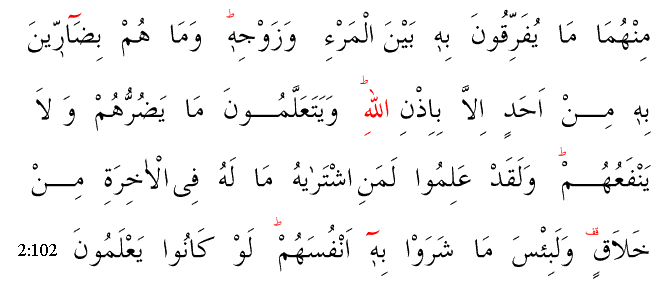 مِنْهُمَا مَا يُفَرِّقُونَ بِهٖ بَيْنَ الْمَرْءِ وَزَوْجِهٖؕ وَمَا هُمْ بِضَآرِّينَ
بِهٖ مِنْ اَحَدٍ اِلاَّ بِاِذْنِ اللّٰهِؕ وَيَتَعَلَّمُونَ مَا يَضُرُّهُمْ وَ لاَ
يَنْفَعُهُمْؕ وَلَقَدْ عَلِمُوا لَمَنِ اشْتَرٰيهُ مَا لَهُ فِى الْاٰخِرَةِ مِنْ
خَلاَقٍࣞ وَلَبِئْسَ مَا شَرَوْا بِهٖٓ اَنْفُسَهُمْؕ لَوْ كَانُوا يَعْلَمُونَ 2:102